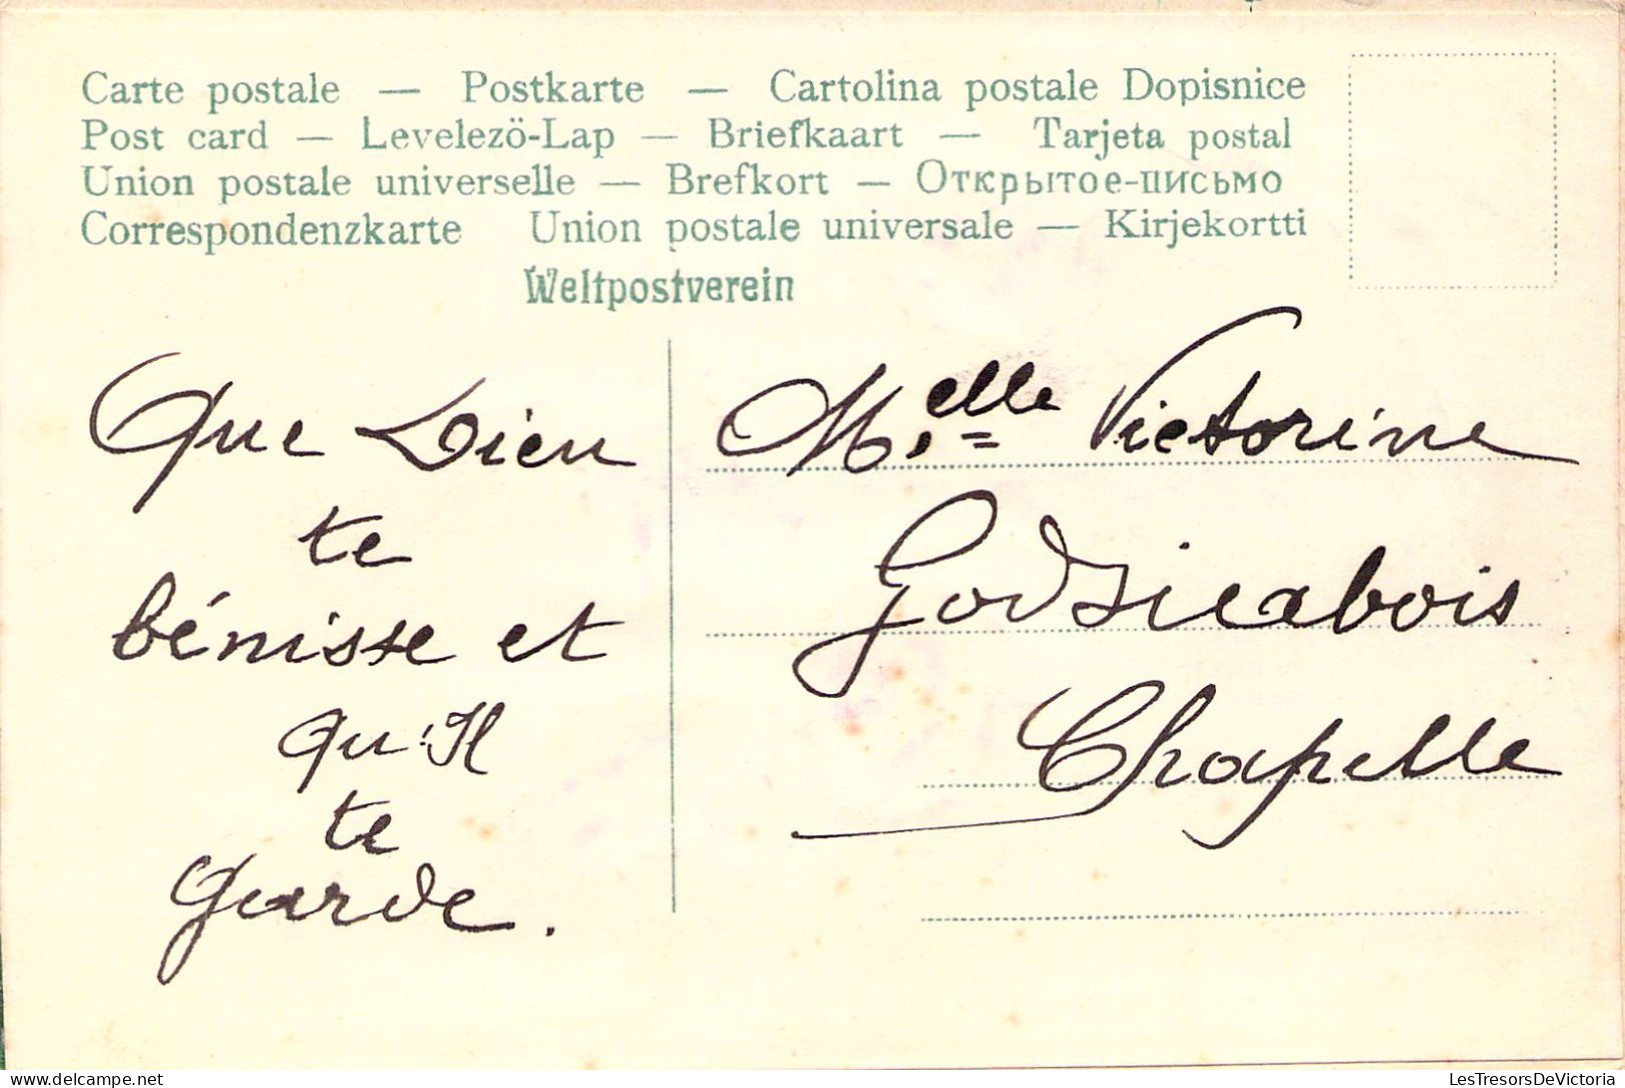 Carte postale — Postkarte — Cartolina postale Dopisnice
Post card — Levelezö-Lap — Briefkaart — Tarjeta postal
Union postale universelle — Brefkort — Открытое-письмо
Correspondenzkarte Union postale universale — Kirjekortti
Weltpostverein
Que Dieu
te
bénisse et
qu'Il
te
garde.
M.elle Victorine
Chapelle
LesTresorsDeVictoria